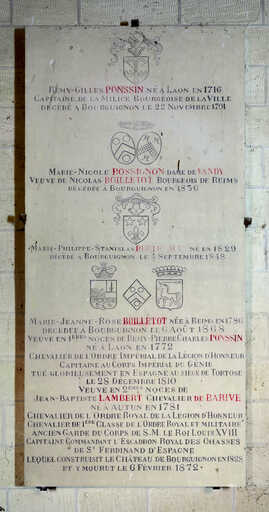 Rémy-Gilles PONSSIN né à Laon en 1716
Capitaine de la Milice Bourgeoise de la Ville
décédé à Bourguignon le 22 Novembre 1791
Marie-Nicole ROSSIGNON dame de VANDY
Veuve de Nicolas BOILLETOT Bourgeois de Reims
décédée à Bourguignon en 1830
Marie-Philippe-Stanislas né en 1829
décédé à Bourguignon le Septembre 1848
Marie-Jeanne-Rose BOILLETOT née à Reims en 1786
décédée à Bourguignon le 6 Août 1868
Veuve en 1ères noces de Remy-Pierre Charles PONSSIN
né à Laon en 1772
Chevalier de l'Ordre Impérial de la Légion d'Honneur
Capitaine au Corps Impérial du Génie
tué glorieusement en Espagne au siège de Tortose
le 28 Décembre 1810
Veuve en 2èmes noces de
Jean-Baptiste LAMBERT Chevalier de BARIVE
né à Autun en 1781
Chevalier de l'Ordre Royal de la Légion d'Honneur
Chevalier de 1ère Classe de l'Ordre Royal et Militaire
Ancien Garde du Corps de S.M. le Roi Louis XVIII
Capitaine Commandant l'Escadron Royal des Chasses
de St Ferdinand d'Espagne
lequel construisit le Château de Bourguignon en 1828
et y mourut le 6 Février 1872